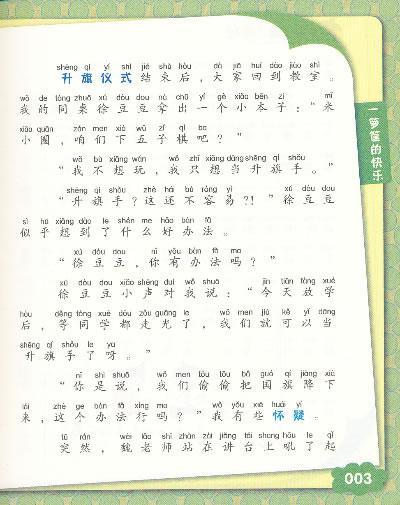 shēng qí yí shì jié shù hòu dà jiā huí dào jiào shì
升旗仪式结束后，大家回到教室。
wǒ de tóng zhuō xú dòu dou ná chū yí gè xiǎo běn zi mǐ
我的同桌徐豆豆拿出一个小本子：“米
xiǎo quān zán men xià wǔ zǐ qí ba
小圈，咱们下五子棋吧？”
wǒ bù xiǎng wán wǒ zhǐ xiǎng dāng shēng qí shǒu
“我不想玩，我只想当升旗手。”
shēng qí shǒu zhè hái bù róng yì xú dòu dou
“升旗手？这还不容易？！”徐豆豆
sì hū xiǎng dào le shén me hǎo bàn fǎ
似乎想到了什么好办法。
xú dòu dou nǐ yǒu bàn fǎ ma
“徐豆豆，你有办法吗？”
xú dòu dou xiǎo shēng duì wǒ shuō jīn tiān fàng xué
徐豆豆小声对我说：“今天放学
hòu děng tóng xué dōu zǒu guāng le wǒ men jiù kě yǐ dāng
后，等同学都走光了，我们就可以当
shēng qí shǒu le ya
升旗手了呀。”
nǐ shì shuō wǒ men tōu tōu bǎ guó qí jiàng xià
“你是说，我们偷偷把国旗降下
lái zhè ge bàn fǎ xíng ma wǒ yǒu xiē huái yí
来，这个办法行吗？”我有些怀疑。
tū rán wèi lǎo shī zhàn zài jiǎng tái shang hǒu le qǐ
突然，魏老师站在讲台上吼了起
一箩筐的快乐
003